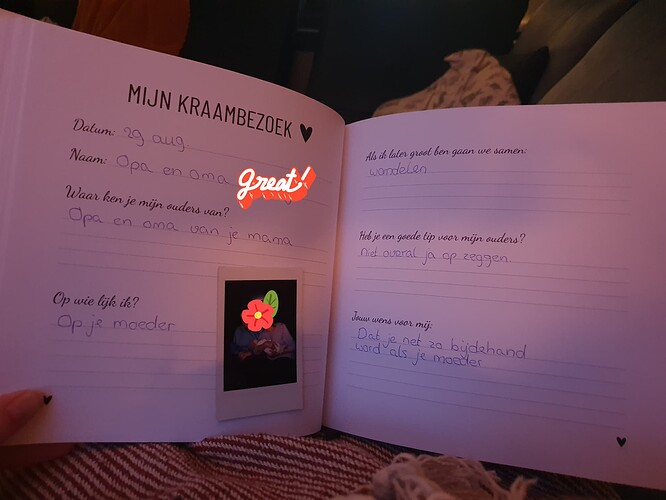 MIJN KRAAMBEZOEK
Datum: 29 aug
Naam: Opa en oma
great!
Waar ken je mijn ouders van?
Opa en oma van je mama
Op wie lijk ik?
Op je moeder
Als ik later groot ben gaan we samen:
wandelen
Heb je een goede tip voor mijn ouders?
Niet overal ja op zeggen
Jouw wens voor mij:
Dat je net zo bijdehand
word als je moeder